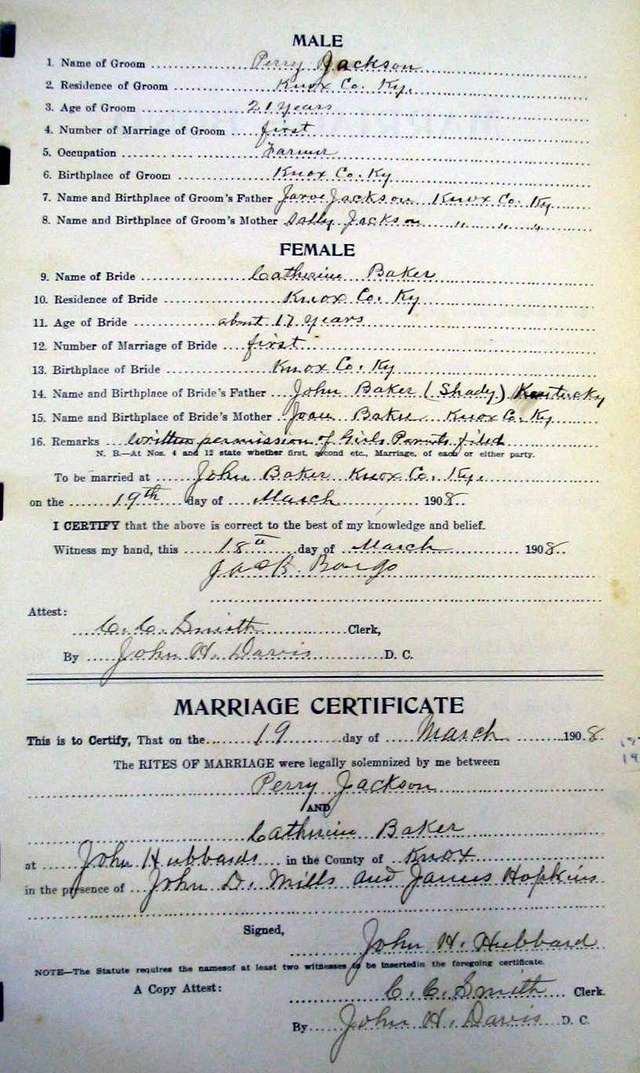 MALE
1. Name of Groom Perry Jackson
2. Residence of Groom Knox Co. Ky.
3. Age of Groom 21 years
4. Number of Marriage of Groom first
5. Occupation Farmer
6. Birthplace of Groom Knox Co. Ky
7. Name and Birthplace of Groom's Father Jackson Knox Co. Ky
8. Name and Birthplace of Groom's Mother Sally Jackson " " "
FEMALE
9. Name of Bride Catherine Baker
10. Residence of Bride Knox Co. Ky
11. Age of Bride about 17 years
12. Number of Marriage of Bride first
13. Birthplace of Bride Knox Co. Ky
14. Name and Birthplace of Bride's Father John Baker (Shady) Kentucky
15. Name and Birthplace of Bride's Mother Baker Knox Co. Ky
16. Remarks Written permission of Girls Parents filed
N. B.—At Nos. 4 and 12 state whether first, second etc., Marriage, of each or either party.
To be married at John Baker Knox Co. Ky.
on the 19th day of March 1908
I CERTIFY that the above is correct to the best of my knowledge and belief.
Witness my hand, this 18th day of March 1908
Attest:
C. C. Smith Clerk,
By John H. Davis D. C.
MARRIAGE CERTIFICATE
This is to Certify, That on the 19 day of March 1908
The RITES OF MARRIAGE were legally solemnized by me between
Perry Jackson
AND
Catherine Baker
at John Hubbards in the County of Knox
in the presence of John D. Mills and James Hopkins
Signed,
John H. Hubbard
NOTE—The Statute requires the names of at least two witnesses to be inserted in the foregoing certificate.
A Copy Attest: C. C. Smith Clerk.
By John H. Davis D. C.